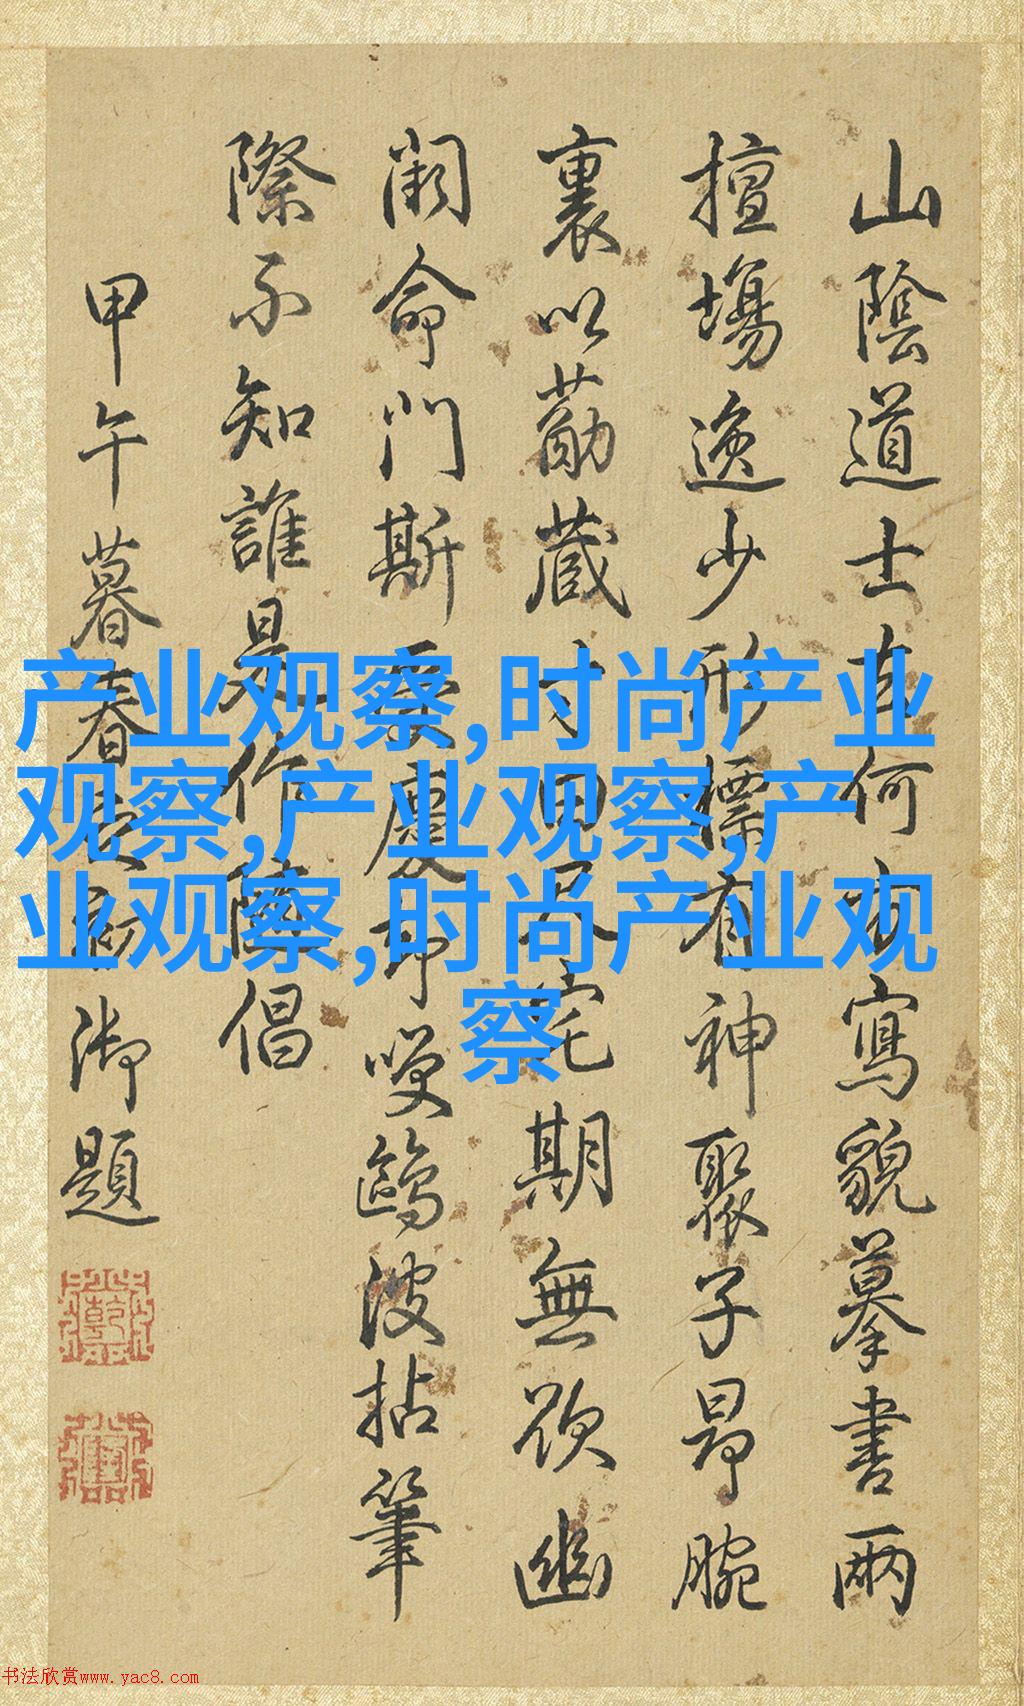 山陰道士何寫貌摹書兩
擅塲逸少形標有神聚子昂腕
裏以蔵寸田尺宅期無欲幽
闕命門斯鷗波拈筆
際不知誰是作倡
甲午暮春御題
产业观察,时尚产业
观察,产业观察,产
业观察,时尚产业观
察
书法欣赏www.yac8.com